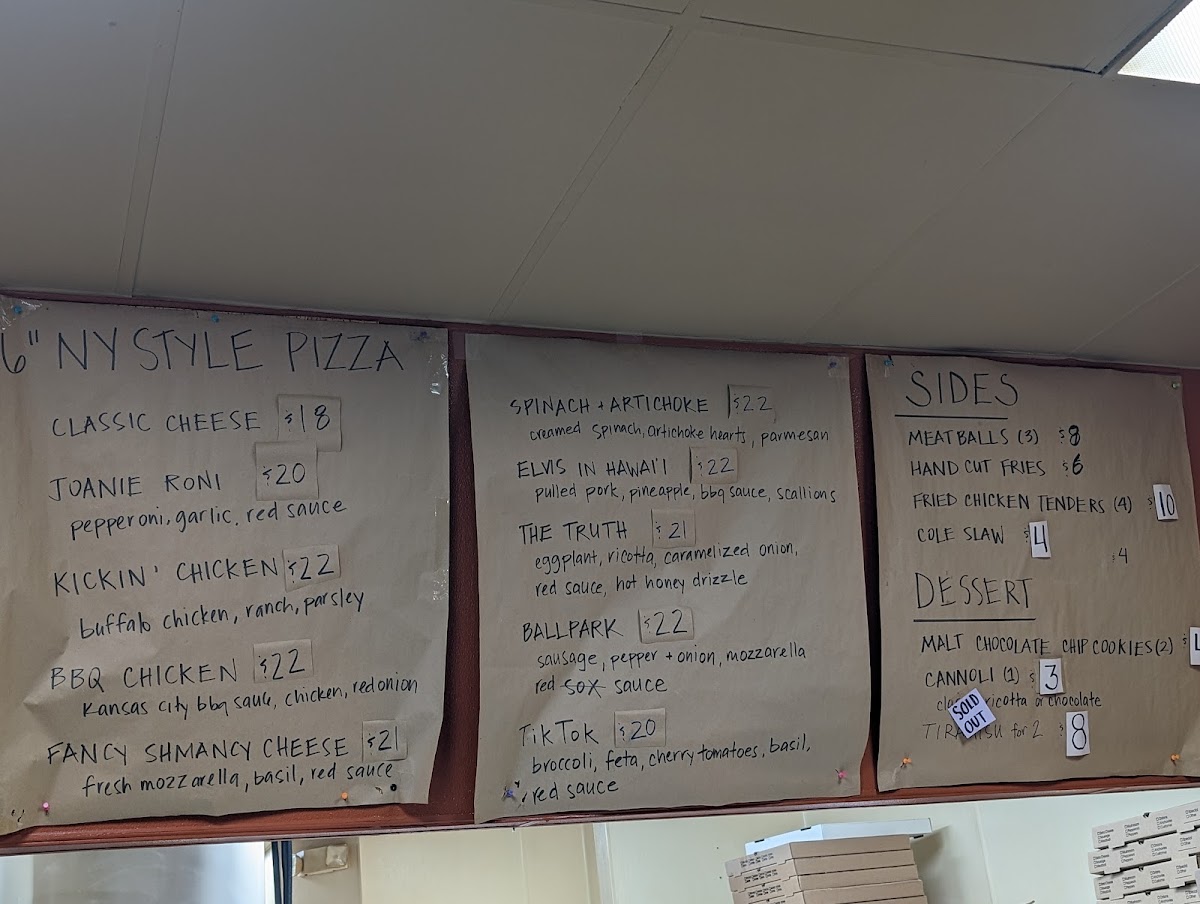 6" NY STYLE PIZZA
CLASSIC CHEESE $18
JOANIE RONI $20
pepperoni, garlic, red sauce
KICKIN' CHICKEN $22
buffalo chicken, ranch, parsley
BBQ CHICKEN $22
Kansas city bbq sauce, chicken, red onion
FANCY SHMANCY CHEESE $21
fresh mozzarella, basil, red sauce
SPINACH + ARTICHOKE $22
creamed spinach, artichoke hearts, parmesan
ELVIS IN HAWAI'I $22
pulled pork, pineapple, bbq sauce, scallions
THE TRUTH $21
eggplant, ricotta, caramelized onion,
red sauce, hot honey drizzle
BALLPARK $22
sausage, pepper + onion, mozzarella
red sox sauce
TikTok $20
broccoli, feta, cherry tomatoes, basil,
red sauce
SIDES
MEATBALLS (3) $8
HAND CUT FRIES $6
FRIED CHICKEN TENDERS (4) $10
COLE SLAW $4
$4
DESSERT
MALT CHOCOLATE CHIP COOKIES (2) $
CANNOLI (1) $3
ricotta or chocolate
SOLD OUT
for 2 $8